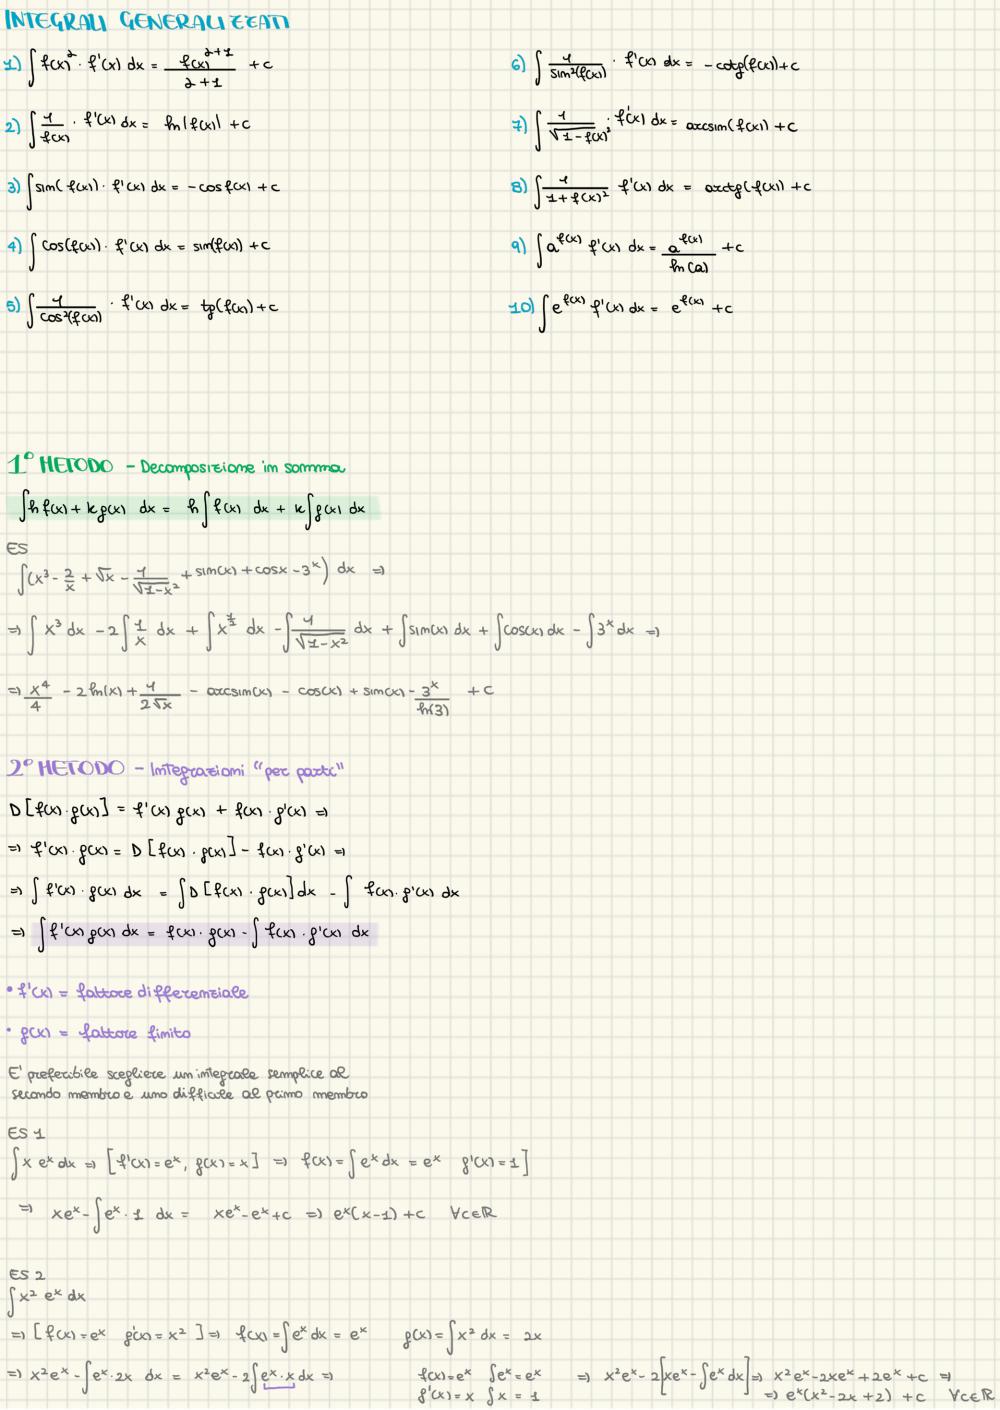 INTEGRALI GENERALIZZATI
1) ∫ f(x)² · f'(x) dx = f(x)²⁺¹ / 2+1 + c
2) ∫ 1/f(x) · f'(x) dx = ln|f(x)| + c
3) ∫ sin(f(x)) · f'(x) dx = -cos f(x) + c
4) ∫ cos(f(x)) · f'(x) dx = sin(f(x)) + c
5) ∫ 1/cos²(f(x)) · f'(x) dx = tg(f(x)) + c
6) ∫ 1/sin²(f(x)) · f'(x) dx = -cotg(f(x)) + c
7) ∫ 1/√(1-f(x)²) · f'(x) dx = arcsin(f(x)) + c
8) ∫ 1/(1+f(x)²) f'(x) dx = arctg(f(x)) + c
9) ∫ a^f(x) f'(x) dx = a^f(x) / ln(a) + c
10) ∫ e^f(x) f'(x) dx = e^f(x) + c
1° METODO - Decomposizione in somma
∫ h f(x) + k g(x) dx = h ∫ f(x) dx + k ∫ g(x) dx
ES
∫ (x³ - 2/x + √x - 1/√(1-x²) + sin(x) + cosx - 3ˣ) dx ⇒
⇒ ∫ x³ dx - 2 ∫ 1/x dx + ∫ x^(1/2) dx - ∫ 1/√(1-x²) dx + ∫ sin(x) dx + ∫ cos(x) dx - ∫ 3ˣ dx ⇒
⇒ x⁴/4 - 2 ln(x) + 1/2√x - arcsin(x) - cos(x) + sin(x) - 3ˣ/ln(3) + c
2° METODO - Integrazioni "per parti"
D[f(x) · g(x)] = f'(x) g(x) + f(x) · g'(x) ⇒
⇒ f'(x) · g(x) = D[f(x) · g(x)] - f(x) · g'(x) ⇒
⇒ ∫ f'(x) · g(x) dx = ∫ D[f(x) · g(x)] dx - ∫ f(x) · g'(x) dx
⇒ ∫ f'(x) g(x) dx = f(x) · g(x) - ∫ f(x) · g'(x) dx
• f'(x) = fattore differenziale
• g(x) = fattore finito
E' preferibile scegliere un integrale semplice al
secondo membro e uno difficile al primo membro
ES 1
∫ x eˣ dx ⇒ [f'(x) = eˣ, g(x) = x] ⇒ f(x) = ∫ eˣ dx = eˣ g'(x) = 1]
⇒ xeˣ - ∫ eˣ · 1 dx = xeˣ - eˣ + c ⇒ eˣ(x-1) + c ∀c∈ℝ
ES 2
∫ x² eˣ dx
⇒ [f(x) = eˣ g'(x) = x²] ⇒ f(x) = ∫ eˣ dx = eˣ g(x) = ∫ x² dx = 2x
⇒ x²eˣ - ∫ eˣ · 2x dx = x²eˣ - 2 ∫ eˣ · x dx ⇒ f(x) = eˣ ∫ eˣ = eˣ ⇒ x²eˣ - 2[xeˣ - ∫ eˣ dx] ⇒ x²eˣ - 2xeˣ + 2eˣ + c ⇒
g'(x) = x ∫ x = 1 ⇒ eˣ(x² - 2x + 2) + c ∀c∈ℝ